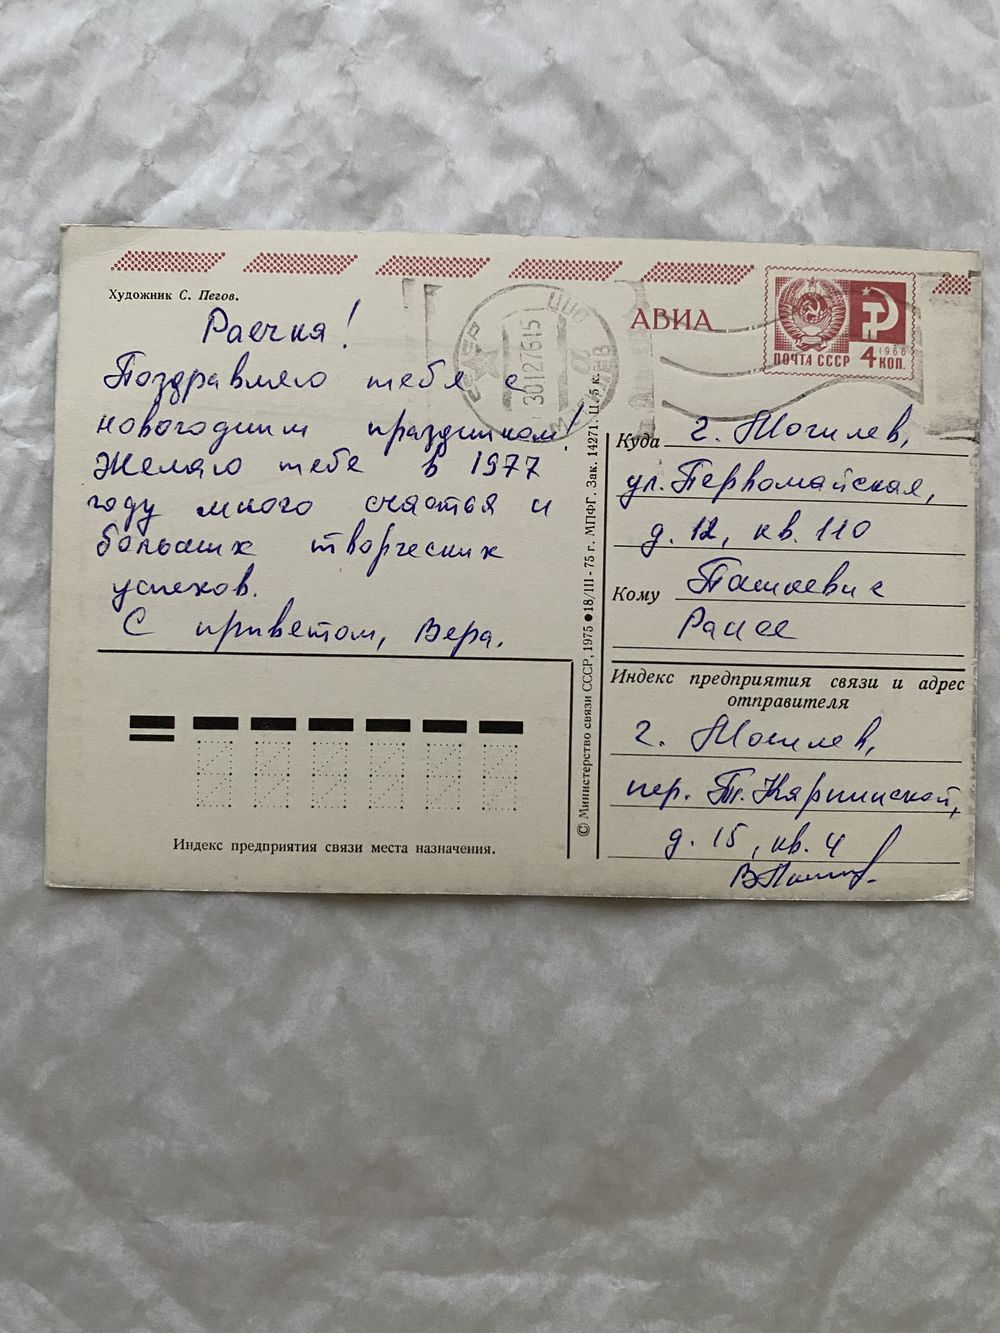 Художник С. Пегов.
Раечка!
Поздравляю тебя с
новогодним праздником!
Желаю тебе в 1977
году много счастья и
больших творческих
успехов.
С приветом, Вера.
Индекс предприятия связи места назначения.
© Министерство связи СССР, 1975 ● 18/III-75 г. МПФГ. Зак. 14271. Ц. 5 к.
СССР
30127615
АВИА
ПОЧТА СССР 4 КОП.
1966
Куда г. Могилев,
ул. Первомайская,
д. 12, кв. 110
Кому
Раисе
Индекс предприятия связи и адрес
отправителя
г. Могилев,
пер. Т. Карпинской,
д. 15, кв. 4